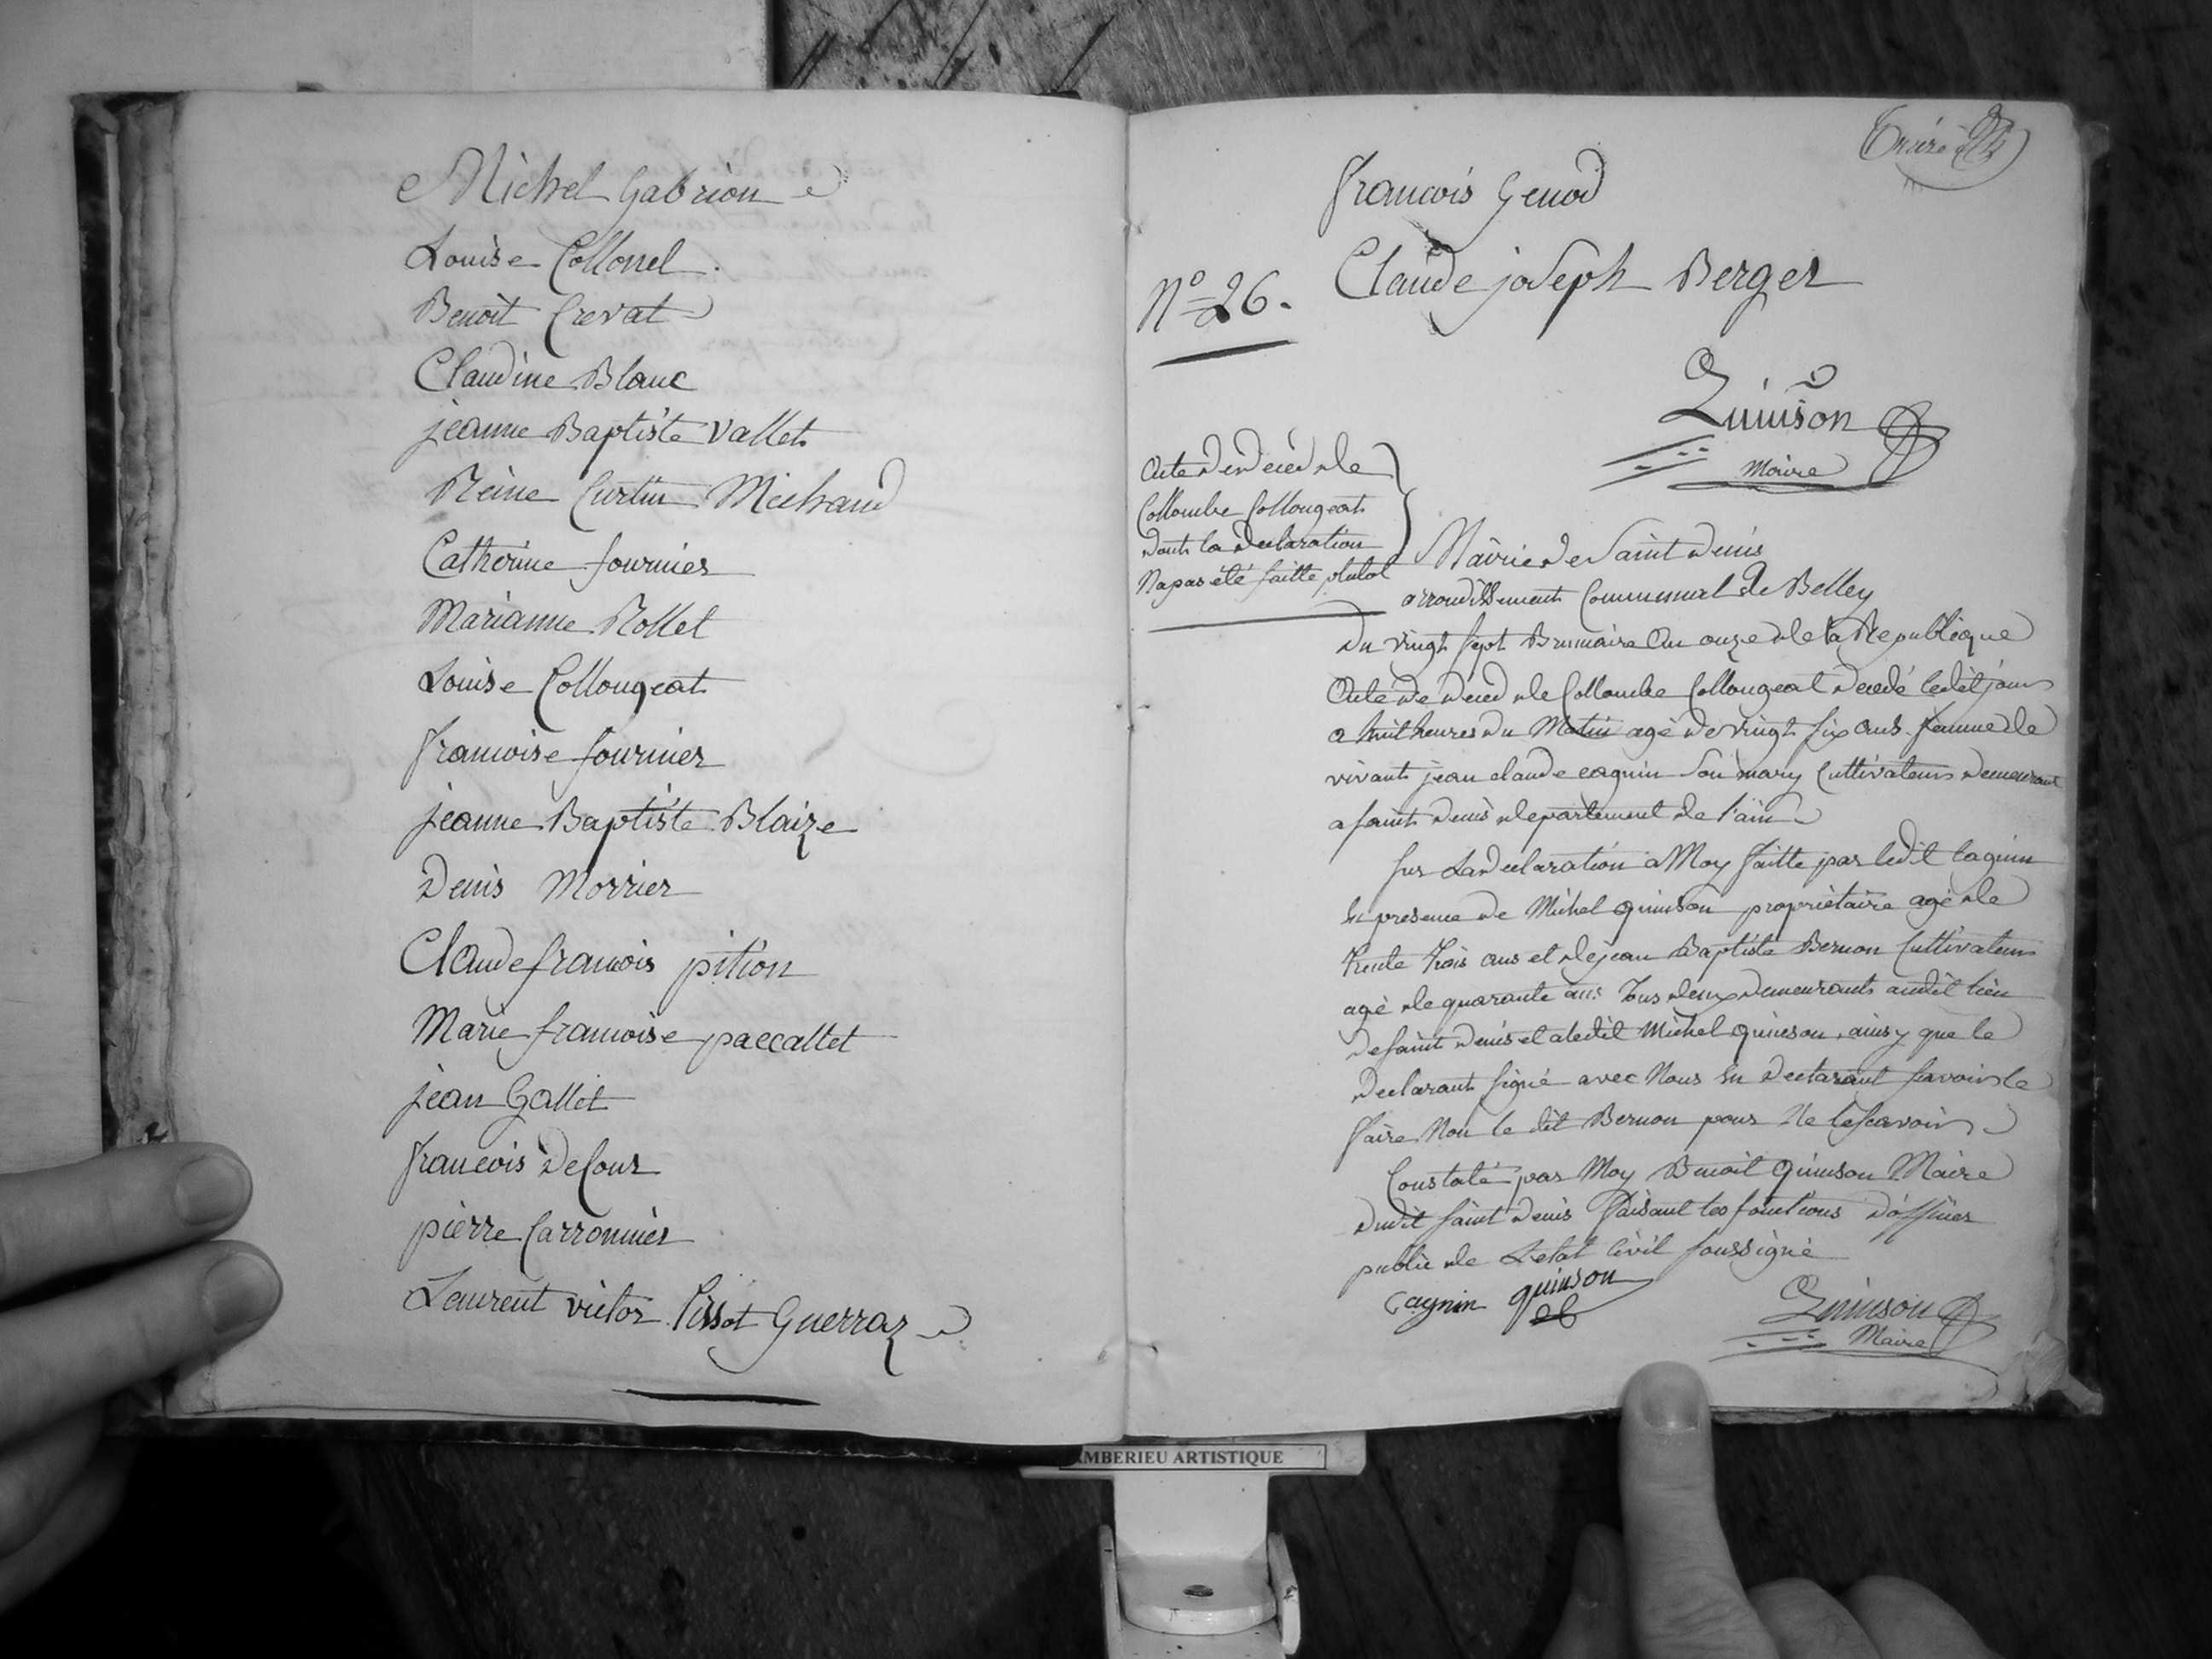 Michel Gabrion
Louise Collonel.
Benoit Crevat
Claudine Blanc
jeanne Baptiste Vallet
Reine Curtin Michaud
Catherine fournier
Marianne Rollet
Louise Collongeat
francoise fournier
jeanne Baptiste Blaize
Denis Morrier
Claude francois pition
Marie francoise paccallet
jean Gallet
francois Decour
pierre Carronnier
Laurent victor Pissot Guerraz
francois Genod
Claude joseph Berger
N° 26.
Quinson
Maire
Acte de decéd de
Collombe Collongeat
dont la declaration
Na pas été faitte plutot
Mairie de Saint denis
arrondissement Communal de Belley
du vingt sept Brumaire an onze de la Republique
Acte de deced de Collombe Collongeat decedé ledit jour
a huit heures du Matin agé de vingt six ans femme de
vivant jean claude cagnin Son mary Cultivateur demeurant
a saint denis departement de l'ain
sur La declaration a Moy faitte par ledit Cagnin
En presence de Michel quinson propriétaire agé de
trente trois ans et de jean Baptiste Bernon Cultivateur
agé de quarante ans tous deux demeurants audit lieu
de saint denis et a ledit Michel quinson, ainsy que le
declarant signé avec Nous En declarant scavoir le
faire Non le dit Bernon pour Ne le scavoir
Constaté par Moy Benoit quinson Maire
dudit saint denis faisant les fonctions d'officier
public de Letat Civil soussigné
Cagnin quinson
Quinson
Maire
MBERIEU ARTISTIQUE